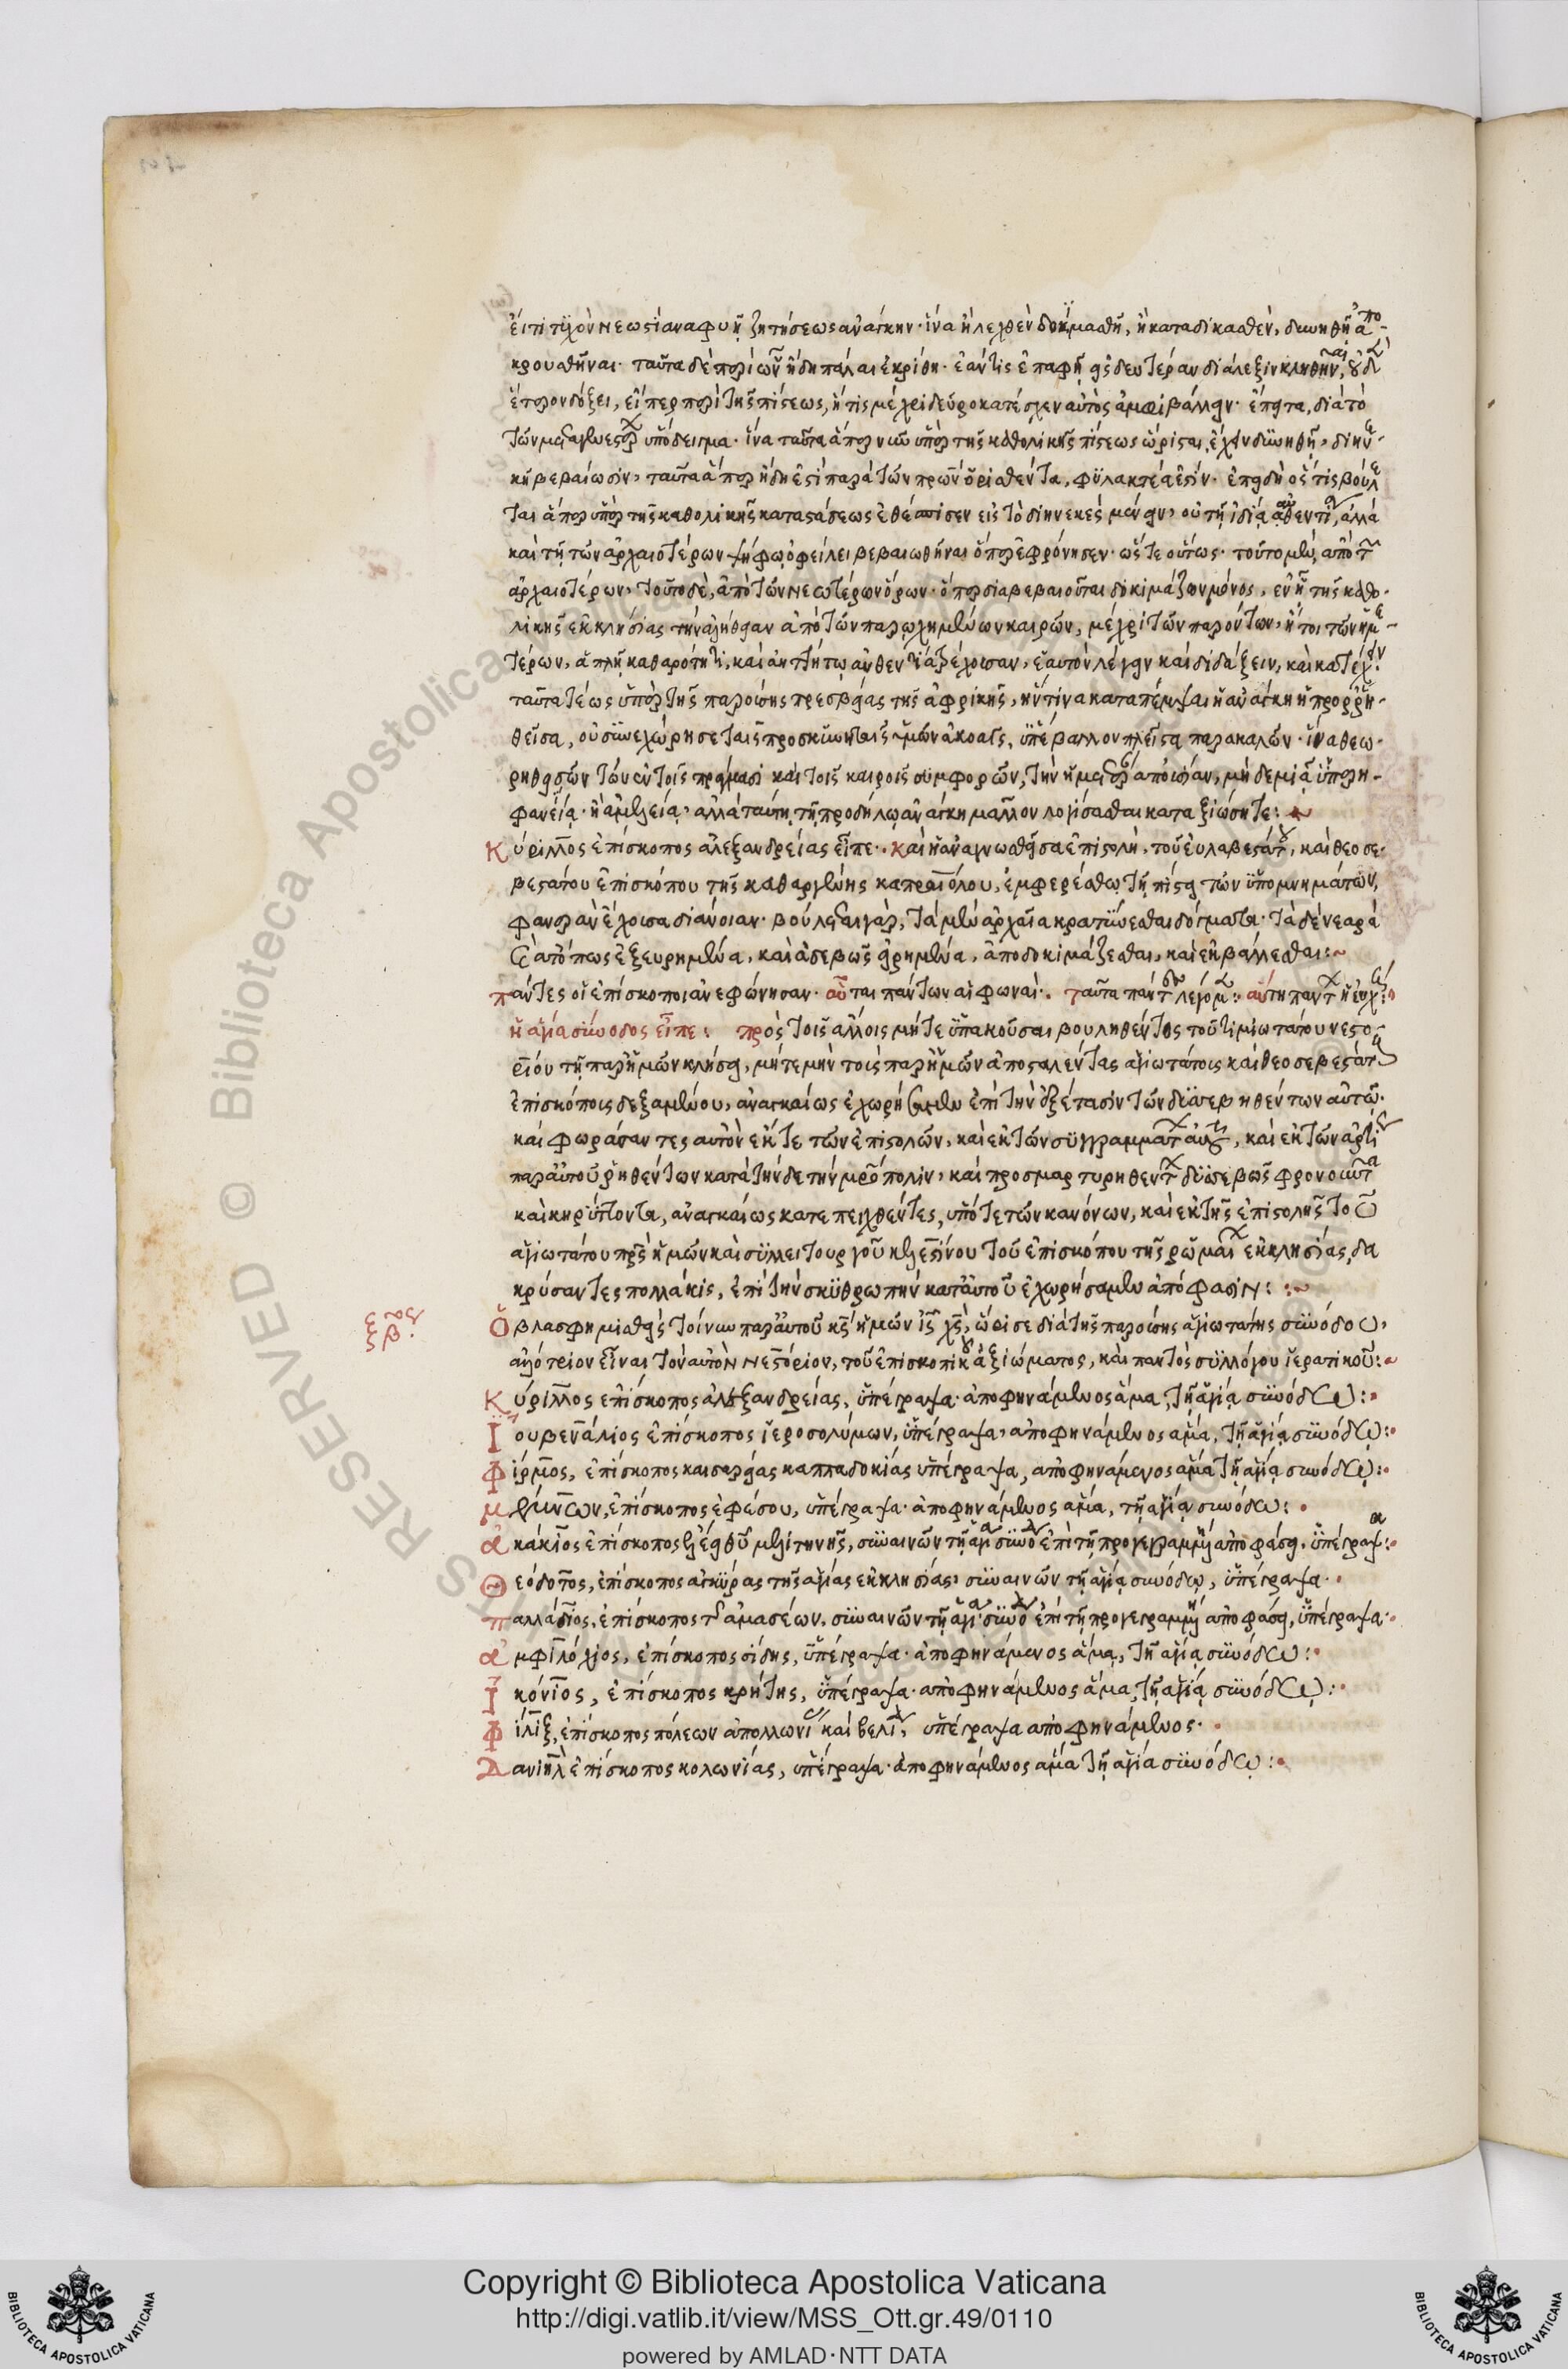 εἴ τι τυχὸν νεωστὶ ἀναφυῇ ζητήσεως ἀνάγκην· ἵνα ἢ λεχθὲν δοκιμασθῇ, ἢ καταδικασθὲν, δυνηθῇ ἀπο-
κρουσθῆναι· ταῦτα δὲ περὶ ὧν ἤδη πάλαι ἐκρίθη· ἐάν τις ἐπαφῇ εἰς δευτέραν διάλεξιν κληθῆναι, οὐδὲν
ἕτερον δόξει, εἴπερ περὶ τῆς πίστεως, ἥτις μέχρι δεῦρο κατέσχεν αὐτὸς ἀμφιβάλλειν· ἔπειτα, διὰ τὸ
τῶν μεταγενεστέρων ὑπόδειγμα· ἵνα ταῦτα ἅπερ νῦν ὑπὲρ τῆς καθολικῆς πίστεως ὥρισται, ἔχειν δυνηθῇ, διηνε-
κῆ βεβαίωσιν, ταῦτα ἅπερ ἤδη ἐστὶ παρὰ τῶν πρῶν ὁρισθέντα, φυλακτέα ἐστίν· ἐπειδὴ ὅστις βούλε
ται ἅπερ ὑπὲρ τῆς καθολικῆς καταστάσεως ἐθέσπισεν εἰς τὸ διηνεκὲς μένειν, οὐ τῇ ἰδίᾳ αὐθεντίᾳ, ἀλλὰ
καὶ τῇ τῶν ἀρχαιοτέρων ψήφῳ ὀφείλει βεβαιωθῆναι ὅπερ ἐφρόνησεν· ὥστε οὕτως· τοῦτο μὲν, ἀπὸ τῶν
ἀρχαιοτέρων, τοῦτο δὲ, ἀπὸ τῶν νεωτέρων ὅρων· ὅπερ διαβεβαιοῦται δοκιμάζων μόνος, ἑνῇ τῆς καθο-
λικῆς ἐκκλησίας τὴν ἀλήθειαν ἀπὸ τῶν παρῳχημένων καιρῶν, μέχρι τῶν παρόντων, ἤτοι τῶν ἡμε-
τέρων, ἁπλῇ καθαρότητι, καὶ ἀηττήτῳ αὐθεντίᾳ τρέχουσαν, ἑαυτὸν λέγειν καὶ διδάξειν, καὶ κατέχειν·
ταῦτα τέως ὑπὲρ τῆς παρούσης πρεσβείας τῆς ἀφρικῆς, ἥντινα καταπέμψαι ἡ ἀνάγκη ἡ προρρη-
θεῖσα, οὐ συνεχώρησε ταῖς προσκυνηταῖς ὑμῶν ἀκοαῖς, ὑπέβαλλον πλεῖστα παρακαλῶν· ἵνα θεω-
ρηθεισῶν τῶν ἐν τοῖς πράγμασι καὶ τοῖς καιροῖς συμφορῶν, τὴν ἡμετέραν ἀπουσίαν, μὴ δεμιᾷ ὑπερη-
φανείᾳ· ἢ ἀμελείᾳ, ἀλλὰ ταύτῃ τῇ προδήλῳ ἀνάγκῃ μᾶλλον λογίσασθαι καταξιώσητε:
Κύριλλος ἐπίσκοπος ἀλεξανδρείας εἶπε· Καὶ ἡ ἀναγνωσθεῖσα ἐπιστολὴ, τοῦ εὐλαβεστάτου, καὶ θεοσε-
βεστάτου ἐπισκόπου τῆς καθαργένης καπραιόλου, ἐμφερέσθω τῇ πίστει τῶν ὑπομνημάτων,
φανερὰν ἔχουσα διάνοιαν· βούλεται γὰρ, τὰ μὲν ἀρχαῖα κρατύνεσθαι δόγματα· τὰ δὲ νεαρὰ
καὶ ἀτόπως ἐξευρημένα, καὶ ἀσεβῶς εἰρημένα, ἀποδοκιμάζεσθαι, καὶ ἐκβάλλεσθαι:~
πάντες οἱ ἐπίσκοποι ἀνεφώνησαν· αὗται πάντων αἱ φωναί·. ταῦτα πάντες λέγομεν: αὕτη πάντων ἡ εὐχή:
ἡ ἁγία σύνοδος εἶπε: πρὸς τοῖς ἄλλοις μήτε ὑπακοῦσαι βουληθέντος τοῦ τιμιωτάτου νεστο-
ρίου τῇ παρ' ἡμῶν κλήσει, μήτε μὴν τοὺς παρ' ἡμῶν ἀποσταλέντας ἁγιωτάτοις καὶ θεοσεβεστάτους
ἐπισκόποις δεξαμένου, ἀναγκαίως ἐχωρήσαμεν ἐπὶ τὴν ἐξέτασιν τῶν δυσσεβηθέντων αὐτῷ·
καὶ φωράσαντες αὐτὸν ἔκ τε τῶν ἐπιστολῶν, καὶ ἐκ τῶν συγγραμμάτων αὐτοῦ, καὶ ἐκ τῶν ἀρτίως
παρ' αὐτοῦ ῥηθέντων κατὰ τήνδε τὴν μρόπολιν, καὶ προσμαρτυρηθέντων δυσσεβῶς φρονοῦντα
καὶ κηρύττοντα, ἀναγκαίως κατεπειχθέντες, ὑπό τε τῶν κανόνων, καὶ ἐκ τῆς ἐπιστολῆς τοῦ
ἁγιωτάτου πρς ἡμῶν καὶ συλλειτουργοῦ κελεστίνου τοῦ ἐπισκόπου τῆς ῥωμαίων ἐκκλησίας, δα
κρύσαντες πολλάκις, ἐπὶ τὴν σκυθρωπὴν κατ' αὐτοῦ ἐχωρήσαμεν ἀπόφασιν:~
Ὁ βλασφημισθεὶς τοίνυν παρ' αὐτοῦ κς ἡμῶν ις χς, ὥρισε διὰ τῆς παρούσης ἁγιωτάτης συνόδου,
ἀλλότριον εἶναι τὸν αὐτὸν νεστόριον, τοῦ ἐπισκοπικοῦ ἀξιώματος, καὶ παντὸς συλλόγου ἱερατικοῦ:~
Κύριλλος ἐπίσκοπος ἀλεξανδρείας, ὑπέγραψα· ἀποφηνάμενος ἅμα, τῇ ἁγίᾳ συνόδῳ:
Ἰουβενάλιος ἐπίσκοπος ἱεροσολύμων, ὑπέγραψα, ἀποφηνάμενος ἅμα, τῇ ἁγίᾳ συνόδῳ:
Φίρμος, ἐπίσκοπος καισαρείας καππαδοκίας ὑπέγραψα, ἀποφηνάμενος ἅμα τῇ ἁγίᾳ συνόδῳ:
μέμνων, ἐπίσκοπος ἐφέσου, ὑπέγραψα· ἀποφηνάμενος ἅμα, τῇ ἁγίᾳ συνόδω:
ἀκάκιος ἐπίσκοπος ἐλέει θεοῦ μελιτηνῆς, συναινῶν τῇ ἁγίᾳ συνόδῳ ἐπὶ τῇ προγεγραμμένῃ ἀποφάσει, ὑπέγραψα:
Θεόδοτος, ἐπίσκοπος ἀγκύρας τῆς ἁγίας ἐκκλησίας, συναινῶν τῇ ἁγίᾳ συνόδῳ, ὑπέγραψα·
παλλάδιος, ἐπίσκοπος τῶν ἀμασέων, συναινῶν τῇ ἁγίᾳ συνόδῳ ἐπὶ τῇ προγεγραμμένῃ ἀποφάσει, ὑπέγραψα·
ἀμφιλόχιος, ἐπίσκοπος σίδης, ὑπέγραψα· ἀποφηνάμενος ἅμα, τῇ ἁγίᾳ συνόδω:
Ἰκόνιος, ἐπίσκοπος κρήτης, ὑπέγραψα· ἀποφηνάμενος ἅμα, τῇ ἁγίᾳ συνόδῳ:
Φίλιξ, ἐπίσκοπος πόλεων ἀπολλωνίας καὶ βελι, ὑπέγραψα ἀποφηνάμενος·
Δανιὴλ ἐπίσκοπος κολωνίας, ὑπέγραψα· ἀποφηνάμενος ἅμα τῇ ἁγίᾳ συνόδῳ:
RESERVED © Biblioteca Apostolica
Copyright © Biblioteca Apostolica Vaticana
http://digi.vatlib.it/view/MSS_Ott.gr.49/0110
powered by AMLAD·NTT DATA
BIBLIOTECA APOSTOLICA VATICANA
BIBLIOTECA APOSTOLICA VATICANA